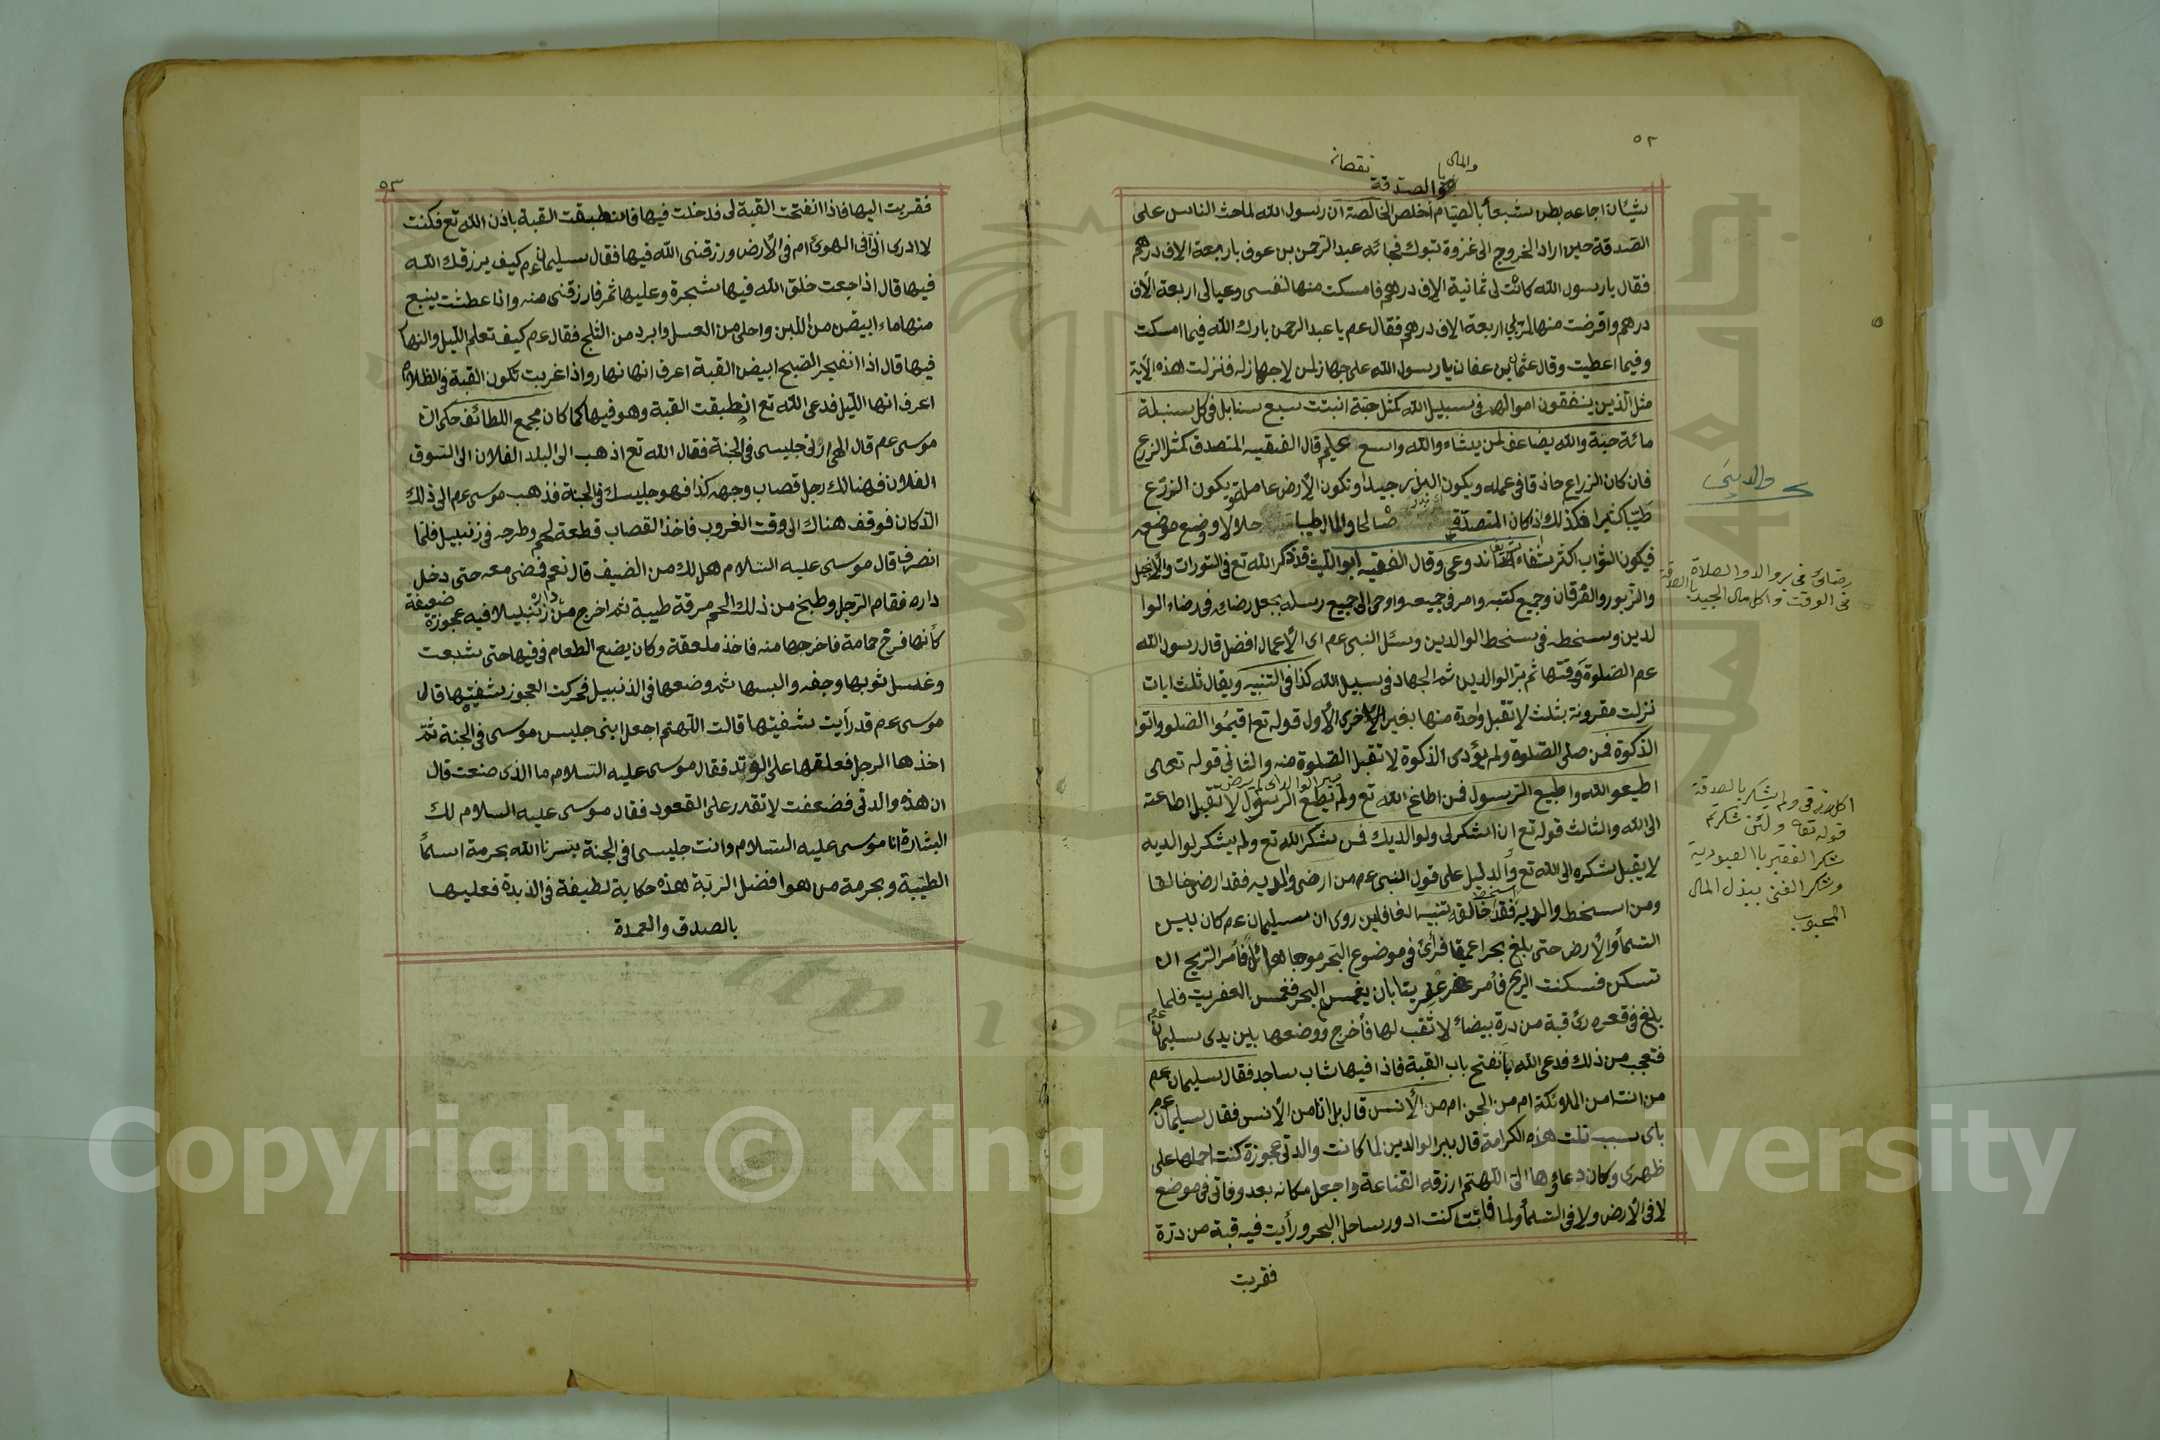 ٥٢
والمال
نقصانه
والصدقة
شيئان اجاعه بطن شبعاً بالصيام اخلص الخالصة ان رسول الله لما حث الناس على
الصدقة حين اراد الخروج الى غزوة تبوك فجائه عبد الرحمن بن عوف باربعة الاف درهم
فقال يا رسول الله كانت لى ثمانية الاف درهم فامسكت منها لنفسى وعيالى اربعة الاف
درهم واقرضت منها لربي اربعة الاف درهم فقال عم يا عبد الرحمن بارك الله فيما امسكت
وفيما اعطيت وقال عثمان بن عفان يا رسول الله على جهاز لمن لا جهاز له فنزلت هذه الآية
مثل الذين ينفقون اموالهم فى سبيل الله كمثل حبة انبتت سبع سنابل فى كل سنبلة
مائة حبة والله يضاعف لمن يشاء والله واسع عليم قال الفقيه المتصدق كمثل الزرع
فان كان الزراع حاذقا فى عمله ويكون البذر جيدا وتكون الأرض عاملة يكون الزرع
طيبا كثيرا فكذلك اذا كان المتصدق صالحا والمال طيبا حلالا ووضع موضعه
فيكون الثواب اكثر وقال الفقيه ابو الليث قد ذكر الله تع فى التورات والانجيل
والزبور والفرقان وجميع كتبه وامر فى جميعه واوحى الى جميع رسله بجعل رضائه فى رضاء الوا
لدين وسخطه فى سخط الوالدين وسئل النبى عم اى الأعمال افضل قال رسول الله
عم الصلوة وقتها ثم بر الوالدين ثم الجهاد فى سبيل الله كذا فى التنبيه ويقال ثلث ايات
نزلت مقرونة بثلث لا تقبل واحدة منها بغير الاخرى الأول قوله تع اقيموا الصلوو اتوا
الذكوة فمن صلى الصلوة ولم يؤدى الذكوة لا تقبل الصلوة منه والثانى قوله تعالى
اطيعو الله واطيع الرسول فمن اطاع الله تع ولم يطع الرسول لا تقبل اطاعته
الى الله والثالث قوله تع ان اشكر لى ولوالديك فمن شكر الله تع ولم يشكر لوالديه
لا يقبل شكره الى الله تع والدليل على قول النبى عم من ارضى والديه فقد ارضى خالقا
ومن اسخط والديه فقد خالقه تنبيه الغافلين روى ان سليمان عم كان بيس
السمأ والأرض حتى بلغ بحرا عميقا فرأى فى موضوع البحر موجا هائلا فأمر الريح ان
تسكن فسكنت الريح فأمر عفريتا بان يغمس البحر فغمس العفريت فلما
بلغ فى قعره رئ قبة من درة بيضاء لا ثقب لها فأخرج ووضعها بين يدى سليمان عم
فتعجب من ذلك فدعى الله بانفتح باب القبة فاذا فيها شاب ساجد فقال سليمان عم
من انت امن الملائكة ام من الجن ام من الأنس قال بل انا من الأنس فقال سليمان عم
باى سبب نلت هذه الكرامة قال ببر الوالدين لما كانت والدتى عجوزة كنت احملها على
ظهرى وكان دعاؤها الى اللهم ارزقه القناعة واجعل مكانه بعد وفاتى فى موضع
لا فى الأرض ولا فى السمأ ولما فائت كنت ادور ساحل البحر ورأيت فيه قبة من درة
فقربت
والديتى
رضائ فى بر والد والصلاة
فى الوقت واكل مال الجيد بالصدقة
اكل رزقى ولم يشكر بالصدقة
قوله تعا ولئن شكرتم
شكر الفقير بالعبودية
وشكر الغنى ببذل المال
المحبوب
٥٣
فقربت اليها فاذا انفتحت القبة لى فدخلت فيها فانطبقت القبة باذن الله تع فكنت
لا ادرى انى فى الهوى ام فى الأرض ورزقنى الله فيها فقال سليمان عم كيف يرزقك الله
فيها قال اذا جعت خلق الله فيها شجرة وعليها ثمر فارزقنى منه واذا عطشت ينبع
منها ماء ابيض من اللبن واحلى من العسل وابرد من الثلج فقال عم كيف تعلم الليل والنها
فيها قال اذا انفجر الصبح ابيض القبة اعرف انها نهار واذا غربت تكون القبة فى الظلام
اعرف انها الليل فدعى الله تع انطبقت القبة وهو فيها كما كان مجمع اللطائف حكى ان
موسى عم قال الهى ارنى جليسى فى الجنة فقال الله تع اذهب الى البلد الفلان الى السوق
الفلان فهنالك رجل قصاب وجهه كذا فهو جليسك فى الجنة فذهب موسى عم الى ذلك
الدكان فوقف هناك الى وقت الغروب فاخذ القصاب قطعة لحم وطرحه فى زنبيل فلما
انصرف قال موسى عليه السلام هل لك من الضيف قال نعم فمضى معه حتى دخل
داره فقام الرجل وطبخ من ذلك اللحم مرقة طيبة ثم اخرج من داره زنبيلا فيه عجوزة ضعيفة
كأنها فرخ حمامة فاخرجها منه فاخذ ملعقة وكان يضع الطعام فى فيها حتى شبعت
وغسل ثوبها وجفه والبسها ثم وضعها فى الذنبيل فحركت العجوز بشفيتها قال
موسى عم قد رأيت بشفيتها قالت اللهم اجعل ابنى جليس موسى فى الجنة ثم
اخذها الرجل فعلقها على الوتد فقال موسى عليه السلام ما الذى صنعت قال
ان هذه والدتى فضعفت لا تقدر على القعود فقال موسى عليه السلام لك
البشارة انا موسى عليه السلام وانت جليسى فى الجنة يسرنا الله بحرمة اسمأ
الطيبة وبحرمة من هو افضل البرية هذه حكاية لطيفة فى الذبدة فعليها
بالصدق والعمدة